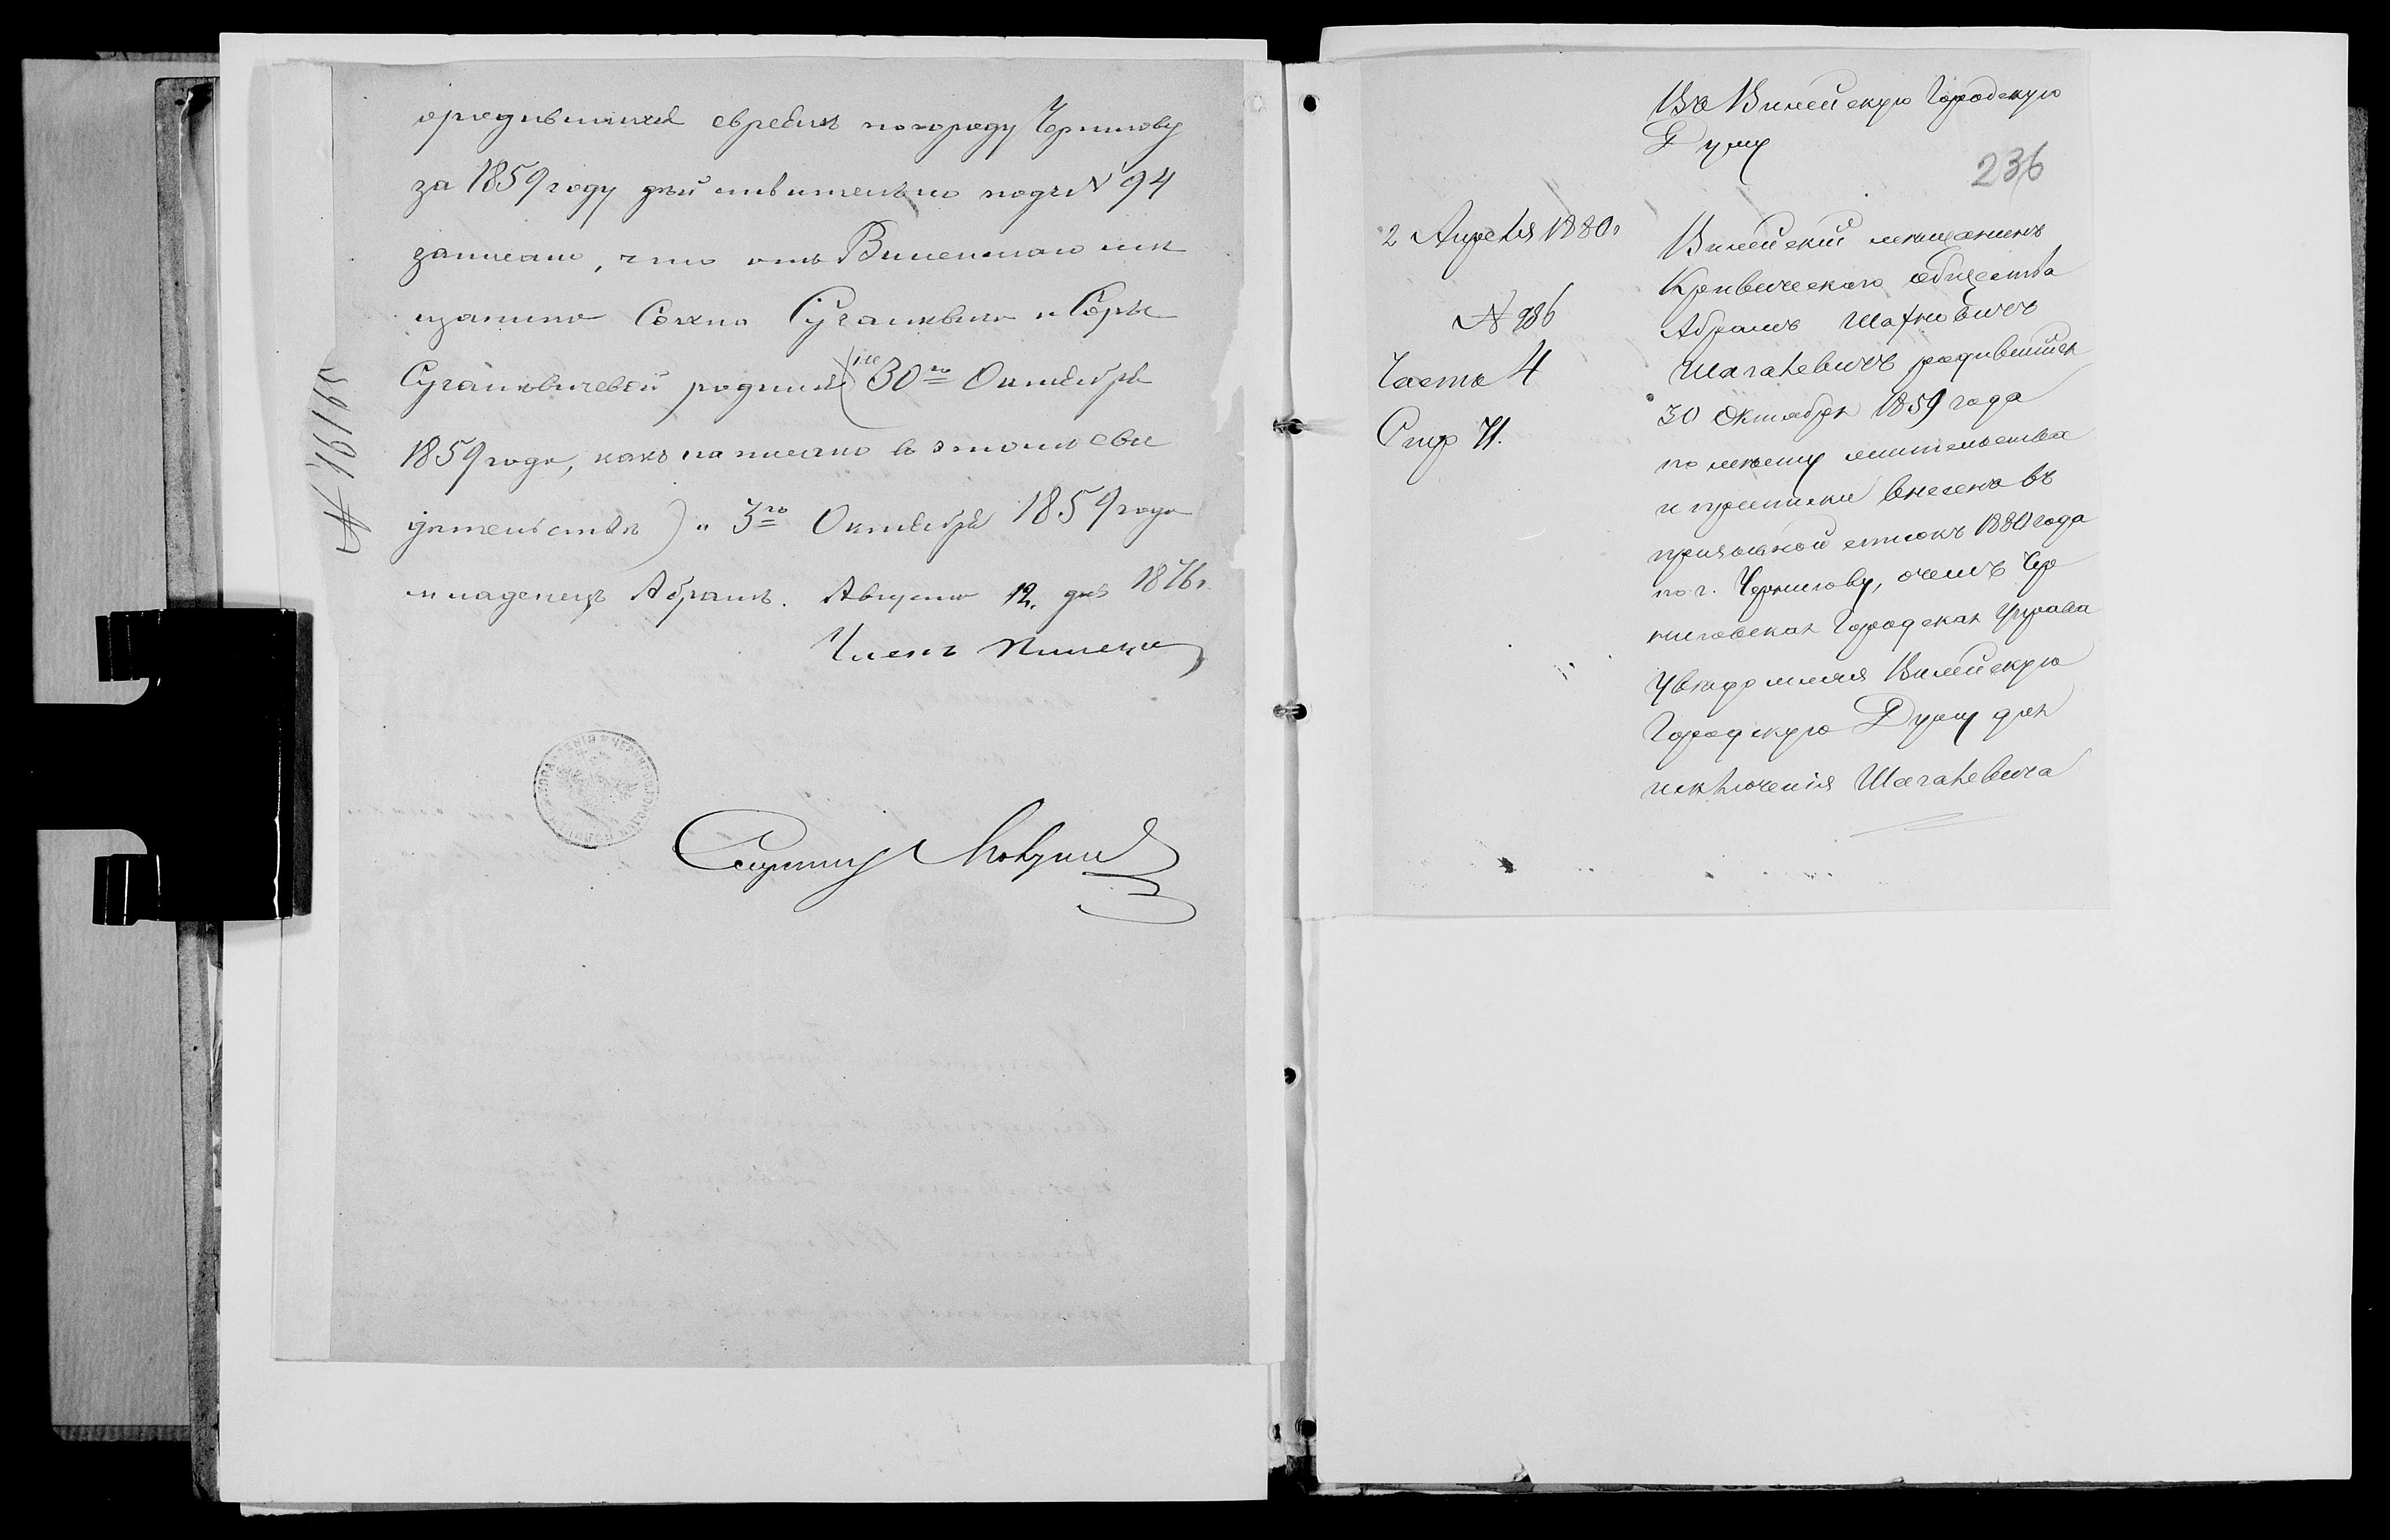 ородившихся евреевъ по городу Чернигову
за 1859 году действительно подъ N 94
записано, что отъ Виленскаго ме
щанина Сохна Сугалевича и Соры
Сугалевичевой родился (не 30го Октября
1859 года, какъ написано въ этомъ сви
детельстве) а 3го Октября 1859 года
младенецъ Абрамъ. Августа 12 дня 1876 г.
Членъ
N 16165
Въ Вилейскую Городскую
Думу
236
2 Апреля 1880 г
N 986
Часть 4
Стр 71.
Вилейскій мещанинъ
Кривическаго общества
Абрамъ Шахновичъ
Шагалевичъ родившійся
30 Октября 1859 года
по месту жительства
и приписки внесенъ въ
призывной списокъ 1880 года
по г. Чернигову, о чемъ Чер
ниговская Городская Управа
Уведомляя Вилейскую
Городскую Думу для
исключенія Шагалевича